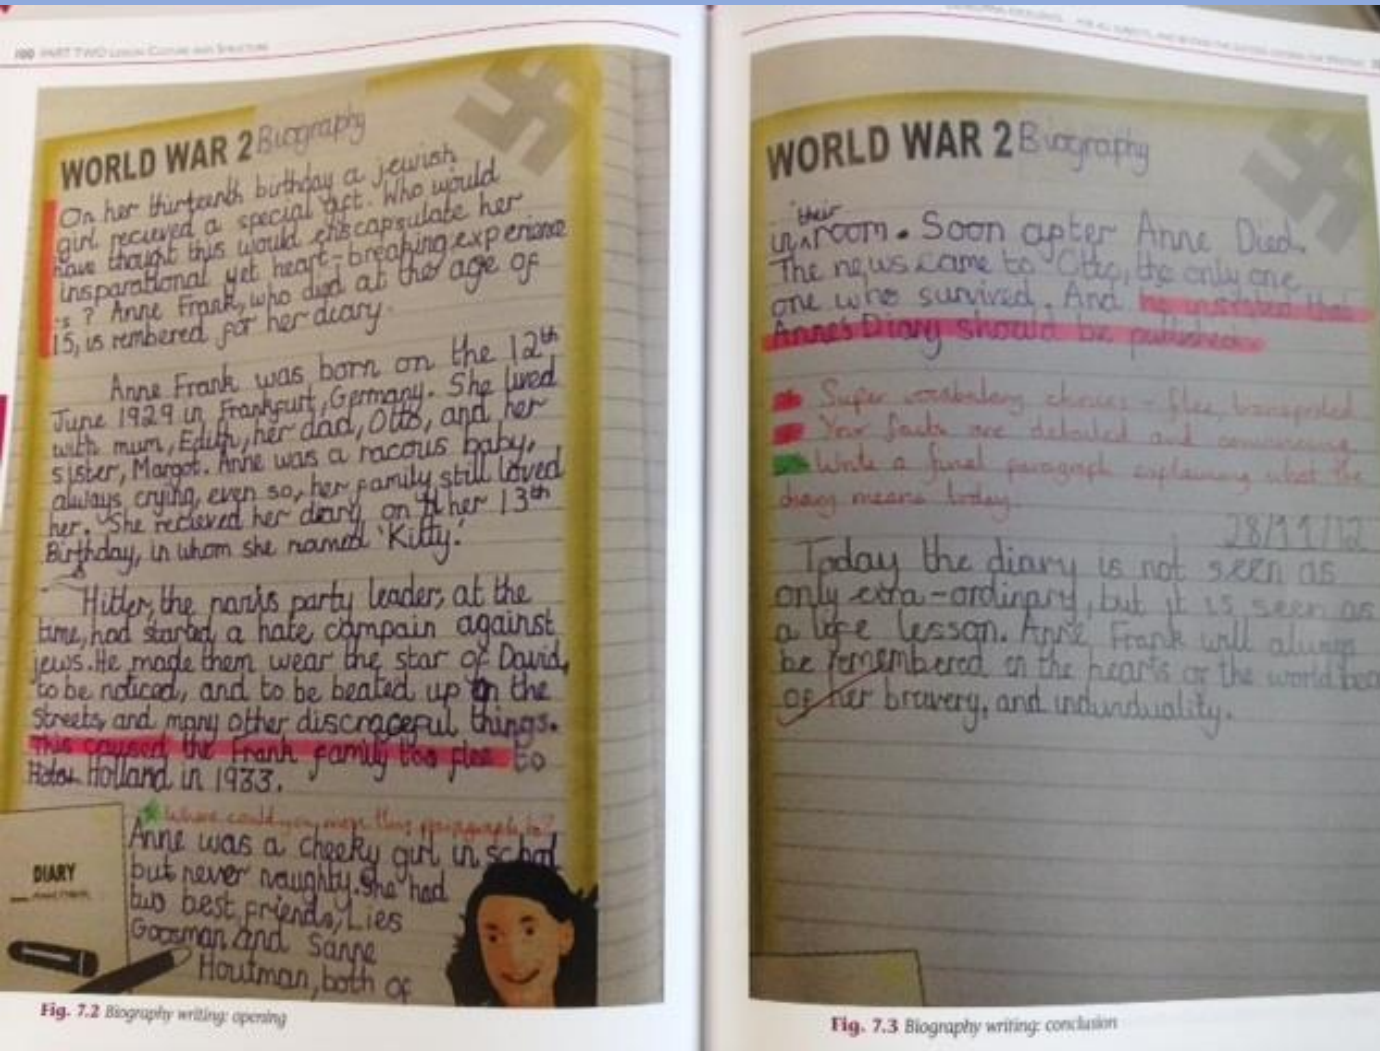 100 PART TWO LESSON CULTURE AND STRUCTURE
WORLD WAR 2 Biography
On her thirteenth birthday a jewish
girl recieved a special gift. Who would
have thought this would enscapsulate her
insparational yet heart-breaking experience
s ? Anne Frank, who died at the age of
15, is rembered for her diary.
Anne Frank was born on the 12th
June 1929 in Frankfurt, Germany. She lived
with mum, Edith, her dad, Otto, and her
sister, Margot. Anne was a racous baby,
always crying, even so, her family still loved
her. She recieved her diary on her 13th
Birthday, in whom she named 'Kitty'.
Hitler, the party leader, at the
time, had started a hate campain against
jews. He made them wear the star of David,
to be noticed, and to be beated up on the
streets, and many other discraceful things.
This caused the Frank family too flee to
Holland in 1933.
Where could you move this paragraph to?
Anne was a cheeky girl in school
but never naughty. She had
two best friends, Lies
Goosman and Sanne
Houtman, both of
DIARY
Fig. 7.2 Biography writing: opening
WORLD WAR 2 Biography
their
in room. Soon after Anne Died.
The news came to Otto, the only one
one who survived. And he insisted that
Anne's Diary should be published.
Super vocabulary choices - flee, transported
Your facts are detailed and convincing
Write a final paragraph explaining what the
diary means today.
28/11/12
Today the diary is not seen as
only extra-ordinary, but it is seen as
a life lesson. Anne Frank will always
be remembered in the hearts or the world
of her bravery, and induviduality.
Fig. 7.3 Biography writing: conclusion